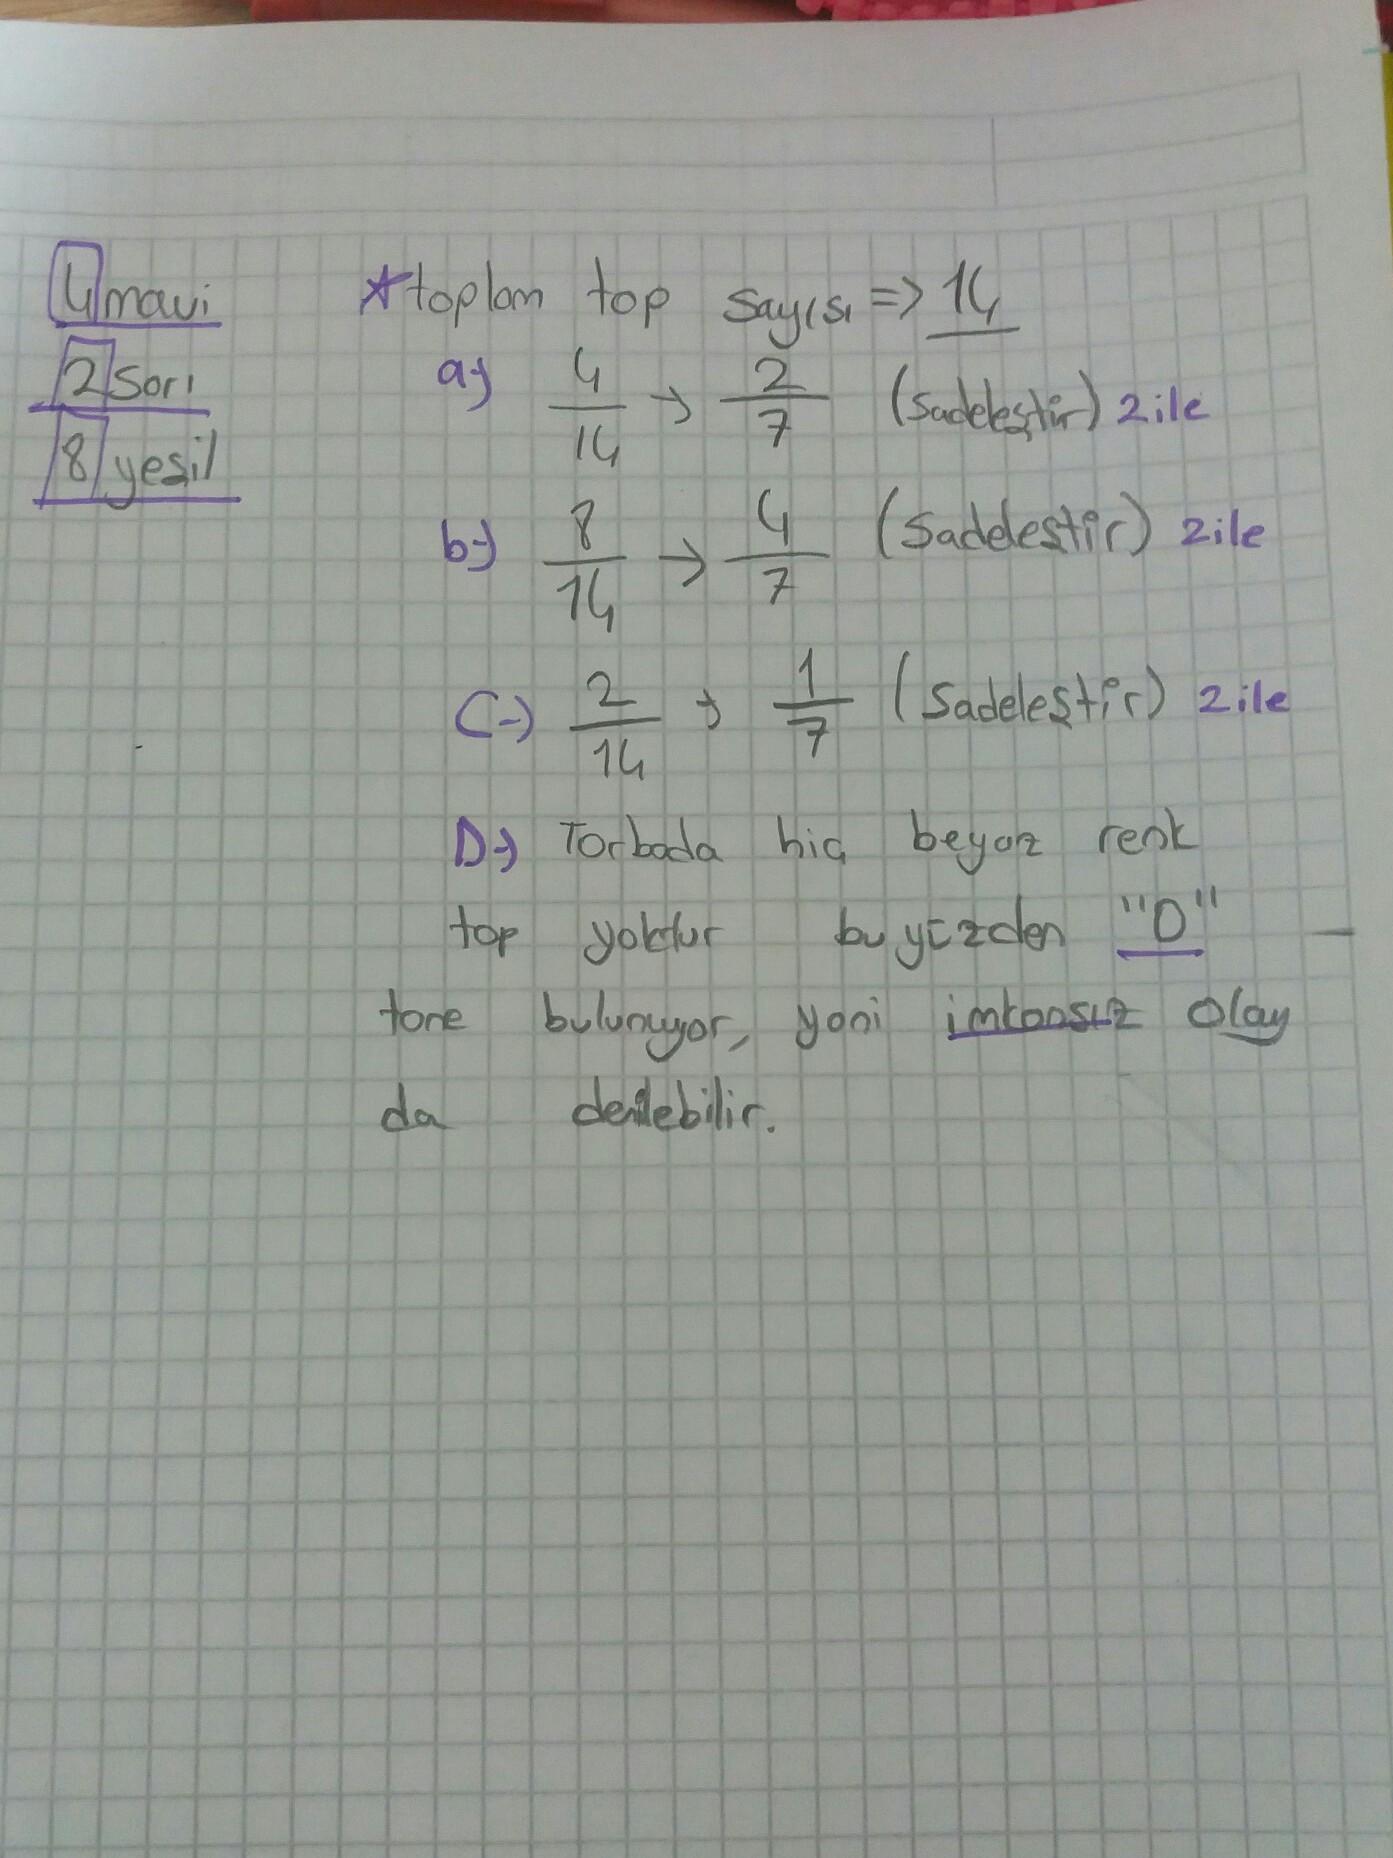 4 mavi
2 sarı
8 yeşil
*toplam top sayısı => 14
a-) 4/14 → 2/7 (Sadeleştir) 2 ile
b-) 8/14 → 4/7 (Sadeleştir) 2 ile
C-) 2/14 → 1/7 (Sadeleştir) 2 ile
D-) Torbada hiç beyaz renk
top yoktur bu yüzden "0"
tane bulunuyor, yani imkansız olay
da denilebilir.